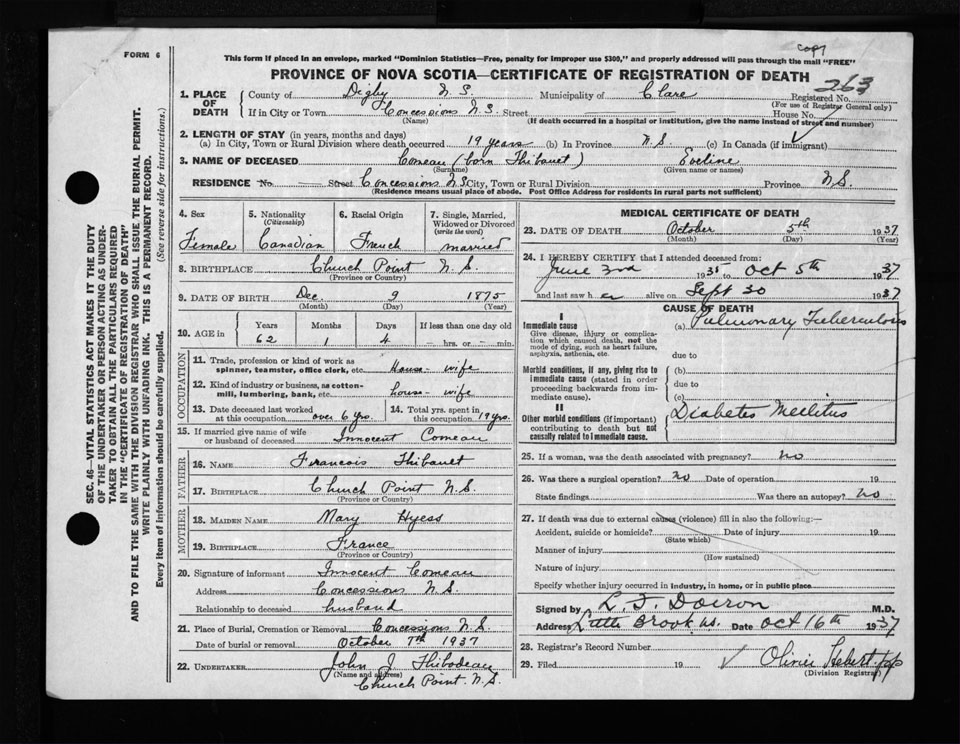 FORM 6
copy
This form if placed in an envelope, marked "Dominion Statistics—Free, penalty for improper use $300," and properly addressed will pass through the mail "FREE"
PROVINCE OF NOVA SCOTIA—CERTIFICATE OF REGISTRATION OF DEATH
263
1. PLACE OF DEATH
County of Digby N. S. Municipality of Clare Registered No.
(For use of Registrar General only)
If in City or Town Concessions N.S. Street House No.
(Name) (If death occurred in a hospital or institution, give the name instead of street and number)
2. LENGTH OF STAY (in years, months and days)
(a) In City, Town or Rural Division where death occurred 19 years (b) In Province N.S. (c) In Canada (if immigrant)
3. NAME OF DECEASED Comeau (born Thibault) Eveline
(Surname) (Given name or names)
RESIDENCE No. Street Concessions N.S. City, Town or Rural Division Province N.S.
(Residence means usual place of abode. Post Office Address for residents in rural parts not sufficient)
4. Sex Female
5. Nationality (Citizenship) Canadian
6. Racial Origin French
7. Single, Married, Widowed or Divorced (write the word) married
8. BIRTHPLACE Church Point N. S.
(Province or Country)
9. DATE OF BIRTH Dec. 9 1875
(Month) (Day) (Year)
10. AGE in Years Months Days If less than one day old
62 1 4 hrs. or min.
OCCUPATION
11. Trade, profession or kind of work as spinner, teamster, office clerk, etc. House-wife
12. Kind of industry or business, as cotton-mill, lumbering, bank, etc. house-wife
13. Date deceased last worked at this occupation over 6 yrs.
14. Total yrs. spent in this occupation 19 yrs.
15. If married give name of wife or husband of deceased Innocent Comeau
FATHER
16. NAME Francois Thibault
17. BIRTHPLACE Church Point N.S.
(Province or Country)
MOTHER
18. MAIDEN NAME Mary Hyess
19. BIRTHPLACE France
(Province or Country)
20. Signature of informant Innocent Comeau
Address Concessions N.S.
Relationship to deceased husband
21. Place of Burial, Cremation or Removal Concessions N.S.
Date of burial or removal October 7th 1937
22. UNDERTAKER John J Thibodeau
(Name and address)
Church Point. N.S.
MEDICAL CERTIFICATE OF DEATH
23. DATE OF DEATH October 5th 1937
(Month) (Day) (Year)
24. I HEREBY CERTIFY that I attended deceased from:
June 3rd 1935 to Oct 5th 1937
and last saw her alive on Sept 30 1937
CAUSE OF DEATH
I
Immediate cause
Give disease, injury or complication which caused death, not the mode of dying, such as heart failure, asphyxia, asthenia, etc.
(a) Pulmonary Tuberculosis
due to
Morbid conditions, if any, giving rise to immediate cause (stated in order proceeding backwards from immediate cause).
(b)
due to
(c)
II
Other morbid conditions (if important) contributing to death but not causally related to immediate cause.
Diabetes Mellitus
25. If a woman, was the death associated with pregnancy? no
26. Was there a surgical operation? no Date of operation 19
State findings Was there an autopsy? no
27. If death was due to external causes (violence) fill in also the following:—
Accident, suicide or homicide? Date of injury 19
(State which)
Manner of injury
(How sustained)
Nature of injury
Specify whether injury occurred in industry, in home, or in public place
Signed by L. F. Doiron M.D.
Address Little Brook N.S. Date Oct 16th 1937
28. Registrar's Record Number
29. Filed 19 Olivier Hebert
(Division Registrar)
SEC. 46—VITAL STATISTICS ACT MAKES IT THE DUTY
OF THE UNDERTAKER OR PERSON ACTING AS UNDER-
TAKER TO OBTAIN ALL THE PARTICULARS REQUIRED
IN THE "CERTIFICATE OF REGISTRATION OF DEATH"
AND TO FILE THE SAME WITH THE DIVISION REGISTRAR WHO SHALL ISSUE THE BURIAL PERMIT.
WRITE PLAINLY WITH UNFADING INK. THIS IS A PERMANENT RECORD.
Every item of information should be carefully supplied. (See reverse side for instructions.)